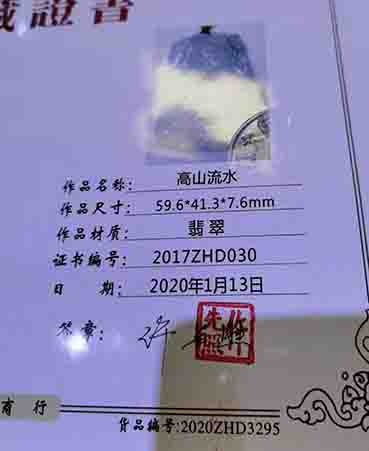 證書
作品名称： 高山流水
作品尺寸： 59.6*41.3*7.6mm
作品材质： 翡翠
证书编号： 2017ZHD030
日 期： 2020年1月13日
签章：
商行
货品编号:2020ZHD3295